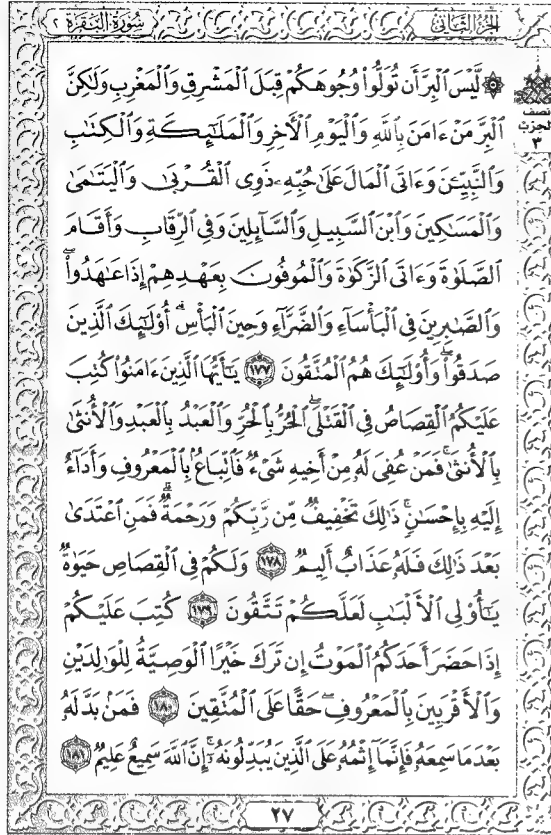 الجزء الثاني
سورة البقرة ٢
نصف
الحزب
٣
۞ لَّيْسَ ٱلْبِرَّ أَن تُوَلُّوا۟ وُجُوهَكُمْ قِبَلَ ٱلْمَشْرِقِ وَٱلْمَغْرِبِ وَلَٰكِنَّ
ٱلْبِرَّ مَنْ ءَامَنَ بِٱللَّهِ وَٱلْيَوْمِ ٱلْءَاخِرِ وَٱلْمَلَٰٓئِكَةِ وَٱلْكِتَٰبِ
وَٱلنَّبِيِّۦنَ وَءَاتَى ٱلْمَالَ عَلَىٰ حُبِّهِۦ ذَوِى ٱلْقُرْبَىٰ وَٱلْيَتَٰمَىٰ
وَٱلْمَسَٰكِينَ وَٱبْنَ ٱلسَّبِيلِ وَٱلسَّآئِلِينَ وَفِى ٱلرِّقَابِ وَأَقَامَ
ٱلصَّلَوٰةَ وَءَاتَى ٱلزَّكَوٰةَ وَٱلْمُوفُونَ بِعَهْدِهِمْ إِذَا عَٰهَدُوا۟ۖ
وَٱلصَّٰبِرِينَ فِى ٱلْبَأْسَآءِ وَٱلضَّرَّآءِ وَحِينَ ٱلْبَأْسِۗ أُو۟لَٰٓئِكَ ٱلَّذِينَ
صَدَقُوا۟ۖ وَأُو۟لَٰٓئِكَ هُمُ ٱلْمُتَّقُونَ ١٧٧ يَٰٓأَيُّهَا ٱلَّذِينَ ءَامَنُوا۟ كُتِبَ
عَلَيْكُمُ ٱلْقِصَاصُ فِى ٱلْقَتْلَىۖ ٱلْحُرُّ بِٱلْحُرِّ وَٱلْعَبْدُ بِٱلْعَبْدِ وَٱلْأُنثَىٰ
بِٱلْأُنثَىٰۚ فَمَنْ عُفِىَ لَهُۥ مِنْ أَخِيهِ شَىْءٌ فَٱتِّبَاعٌۢ بِٱلْمَعْرُوفِ وَأَدَآءٌ
إِلَيْهِ بِإِحْسَٰنٍۗ ذَٰلِكَ تَخْفِيفٌ مِّن رَّبِّكُمْ وَرَحْمَةٌۗ فَمَنِ ٱعْتَدَىٰ
بَعْدَ ذَٰلِكَ فَلَهُۥ عَذَابٌ أَلِيمٌ ١٧٨ وَلَكُمْ فِى ٱلْقِصَاصِ حَيَوٰةٌ
يَٰٓأُو۟لِى ٱلْأَلْبَٰبِ لَعَلَّكُمْ تَتَّقُونَ ١٧٩ كُتِبَ عَلَيْكُمْ
إِذَا حَضَرَ أَحَدَكُمُ ٱلْمَوْتُ إِن تَرَكَ خَيْرًا ٱلْوَصِيَّةُ لِلْوَٰلِدَيْنِ
وَٱلْأَقْرَبِينَ بِٱلْمَعْرُوفِۖ حَقًّا عَلَى ٱلْمُتَّقِينَ ١٨٠ فَمَنۢ بَدَّلَهُۥ
بَعْدَ مَا سَمِعَهُۥ فَإِنَّمَآ إِثْمُهُۥ عَلَى ٱلَّذِينَ يُبَدِّلُونَهُۥٓۚ إِنَّ ٱللَّهَ سَمِيعٌ عَلِيمٌ ١٨١
٢٧